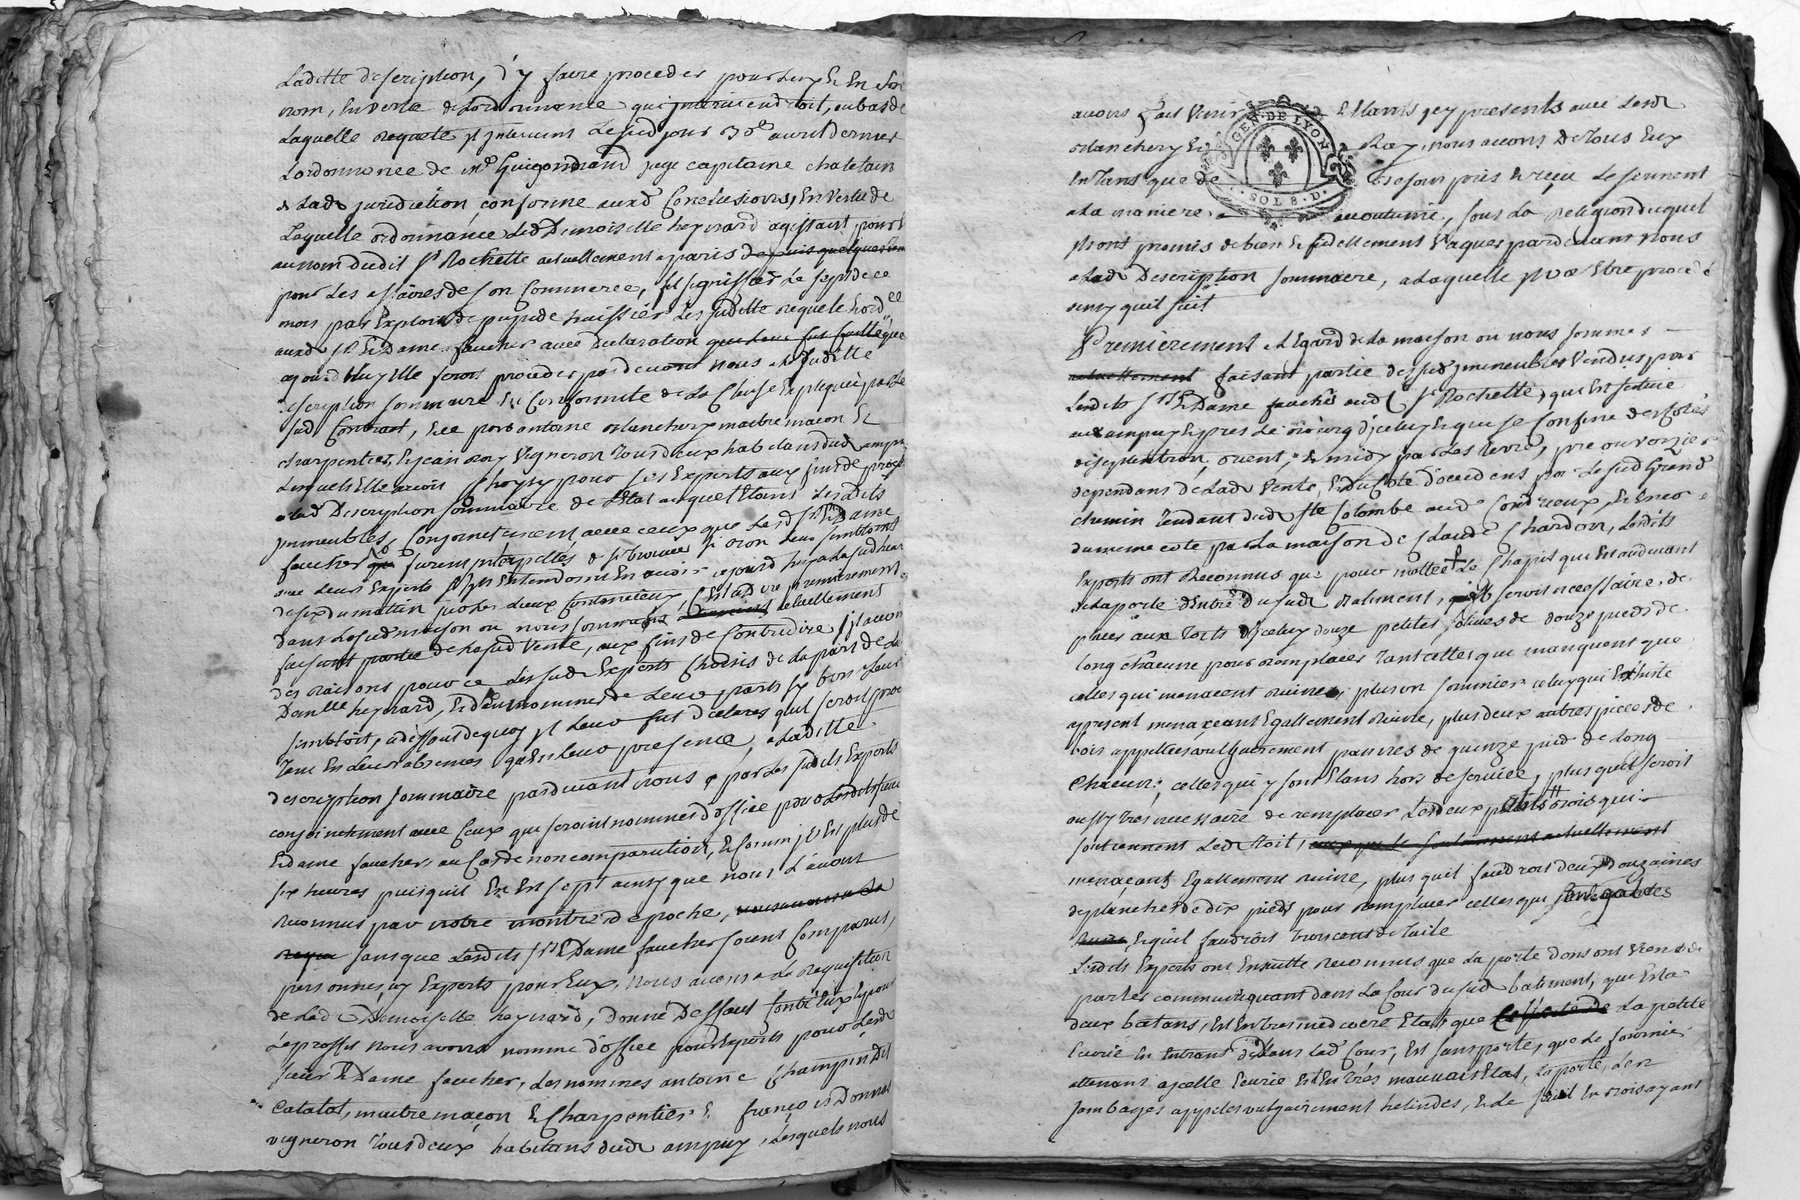 Ladette description, d'y faire proceder pour Luy & En Son
nom, En vertu de Lordonnance qui interviendroit, au bas de
Laquelle requete jl jntervint Ledud jour 30e avril dernier
Lordonnance de mr Guigondrand juge capitaine chatelain
de Lade juridiction conforme auxd Conclusions, En Vertu de
Laquelle ordonnance Lad Demoiselle heyrard agissant pour &
au nom dudit Sr Rochette actuellement a paris depuis quelques
pour Les affaires de Son Commerce, fit signiffier Le Sept de ce
mois par Exploit de huissier Les Susditte requete & ordce
auxd Sr & Dame faucher avec declaration que Leur fut faitte que
cejourdhuy Elle feroit proceder pardevant nous a Laditte
description Sommaire En Conformité de La Clause Expliquée par Le
Sud Contract, antoine blanchery maitre macon &
charpentier, & jean roy Vigneron tous deux habitans dud ampuis
Lesquels Elle avoit Choisy pour Ses Experts aux fins de proceder
a Lad Description Sommaire de Letat auquel Etaient Lesdits
jmmeubles, Conjointement avec ceux que Lesd Sr & Dame
faucher furent jnterpellés de Si bon Leur Sembloit
de Six du matin
dans Lasud maison ou nous Sommes actuellement
faisant partie de Lasud Vente, aux fins de Contredire
des raisons pour ce Lesud Experts Choisis de La part de La
Damlle heyrard, & den nommer de Leur part Sy bon Leur
Sembloit, a deffaut de quoy jl Leur fut declaré quil Seroit procedé
tant En Leur absence quen Leur presence, a Laditte
description Sommaire pardevant nous, & par Les Sudits Experts
conjointement avec Ceux qui Seroint nommes doffice pour Lesdits Sieur
& Dame faucher, au Cas de non comparution, & Comm jl Est plus de
Six heures puisquil En Est Sept ainsy que nous L'avons
Reconnus par notre montre de poche,
Sans que Lesdits Sr & Dame faucher Soient Comparus,
personne, ny Experts pour Eux, nous avons a La requisition
de Lad Demoiselle heyrard, donné Deffaut Contr'Eux & pour
Le proffit nous avons nommé doffice pour Experts pour Lesd
Sieur & Dame faucher, Les nommés antoine Champin dit
Catalot, maitre maçon & Charpentier & françois Donnet
vigneron tous deux habitans dud ampuis, Lesquels nous
avons fait Venir & Etants jcy presents avec Lesd
blanchery & Roy, nous avons De tous Eux
En tant que de besoin pris & reçu Le Serment
a La maniere accoutumé, Sous La Religion duquel
jls ont promis de bien & fidellement Vaquer pardevant nous
a Lad Description Sommaire, a Laquelle jl Va Etre procedé
ainsy quil Suit
Premierement a Legard de La maison ou nous Sommes
actuellement faisant partie desud jmmeubles Vendus par
Lesdits Sr & Dame faucher aud Sr Rochette, qui Est Scituée
aux ampuis & pres Le bourg djceluy & qui se Confine des Cotés
de Septentrion, orient, & midy par Les terre, pré ou verger
dependans de Lade Vente, & du Coté d'occident par Le Sud Grand
chemin tendant dud Ste Colombe aud Condrieux, & Encore
du meme coté par La maison de Claude Chardon, Lesdits
Experts ont Reconnus que pour mettre Le Chapis qui Est audevant
de La porte dentrée du Sud Batiment, il Seroit necessaire de
placer aux toits djceluy douze petites Solives de douze pieds de
long chacune pour remplacer tant celles qui manquent que
celles qui menacent ruine, plus un Sommier celuy qui Existe
appresent menaçeant Egallement Ruine, plus deux autres pieces de
bois appellées vulgairement pannes de quinze pied de Long
Chacune, celles qui y sont Etant hors de Service, plus quil Seroit
aussy tres necessaire de remplacer Les deux petits bois qui
Soutiennent Led toit,
menaçants Egallement ruine, plus quil faudroit deux Douzaines
de planches de dix pieds pour Remplacer celles qui Sont gatées
& quil faudroit trois cent de tuile
Lesdits Experts ont Ensuitte reconnus que La porte dont on Vient de
parler communiquant dans La Cour du Sud batiment, qui Est a
deux batans, Est En tres mediocre Etat, que La petite
Ecurie En Entrant dedans Lad Cour, Est Sans porte, que Le fournier
attenant a jcelle Ecurie Est En très mauvais Etat, La porte, Les
Jambages appellés vulgairement helindes, & Le Seuil En bois ayant
GEN. DE LYON
SOL 8. D.